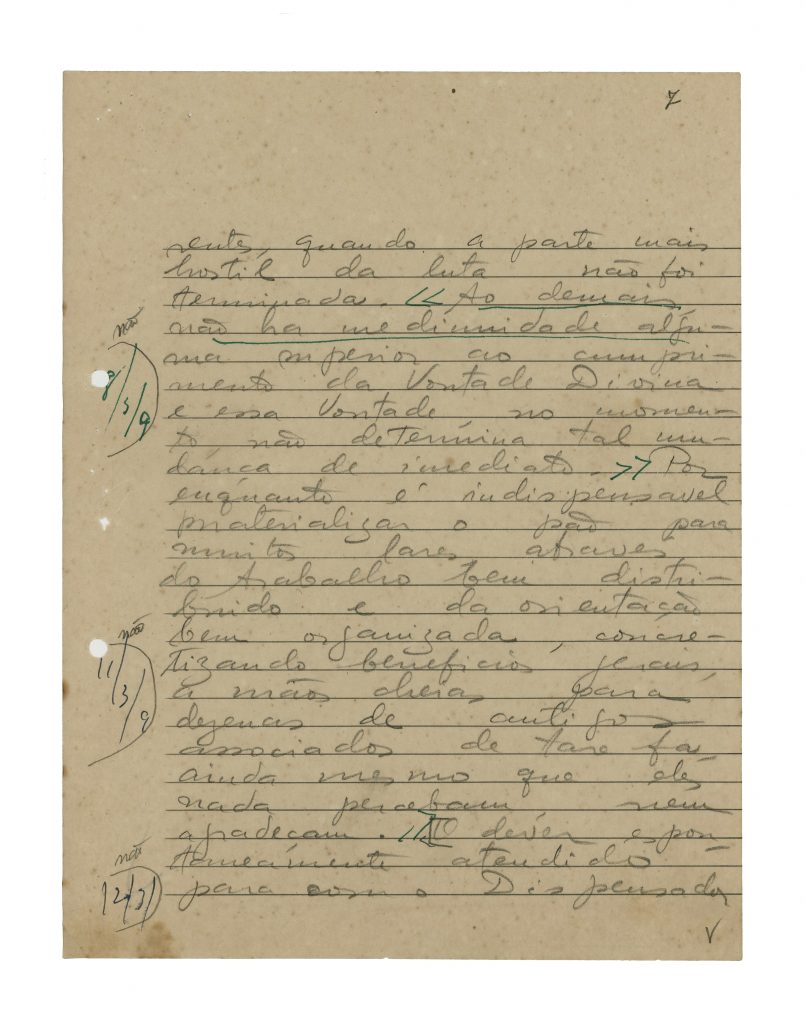 7
rentes, quando a parte mais
hostil da luta não foi
terminada. << Ao demais,
não ha mediunidade algu-
ma superior ao cumpri-
mento da Vontade Divina
e essa Vontade, no momen-
to não determina tal mu-
dança de imediato. >> Por
enquanto é indispensavel
materializar o pão para
muitos lares, atravez
do trabalho bem distri-
buido e da orientação
bem organizada, concre-
tizando beneficios gerais,
á mãos cheias para
dezenas de antigos
associados de tarefa
ainda mesmo que eles
nada percebam, nem
agradeçam. << O dever espon-
taneamente atendido
para com o Dispensador
V
não
8/3/9
não
11/3/9
não
12/3/